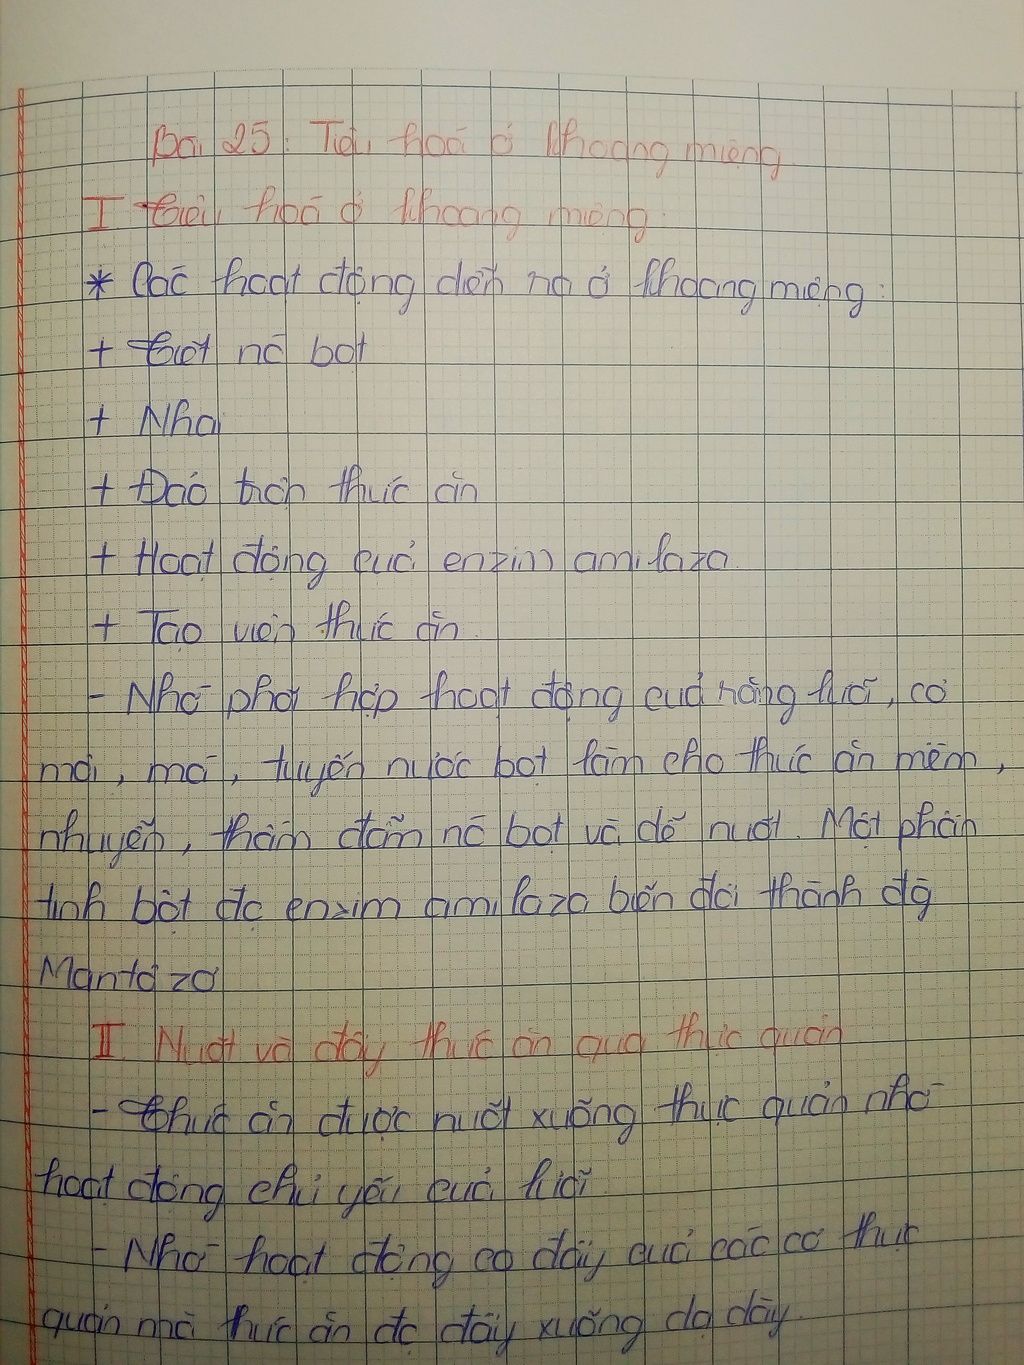 Bài 25: Tiêu hoá ở khoang miệng
I Tiêu hoá ở khoang miệng.
* Các hoạt động diễn ra ở khoang miệng:
+ Tiết nc bọt
+ Nhai
+ Đảo trộn thức ăn
+ Hoạt động của enzim amilaza
+ Tạo viên thức ăn.
- Nhờ phối hợp hoạt động của răng lưỡi, cơ
môi, má, tuyến nước bọt làm cho thức ăn mềm,
nhuyễn, thấm đẫm nc bọt và dễ nuốt. Một phần
tinh bột đc enzim amilaza biến đổi thành đg
Mantozơ
II. Nuốt và đẩy thức ăn qua thực quản
- Thức ăn được nuốt xuống thực quản nhờ
hoạt động chủ yếu của lưỡi.
- Nhờ hoạt động co đẩy của các cơ thực
quản mà thức ăn đc đẩy xuống dạ dày.